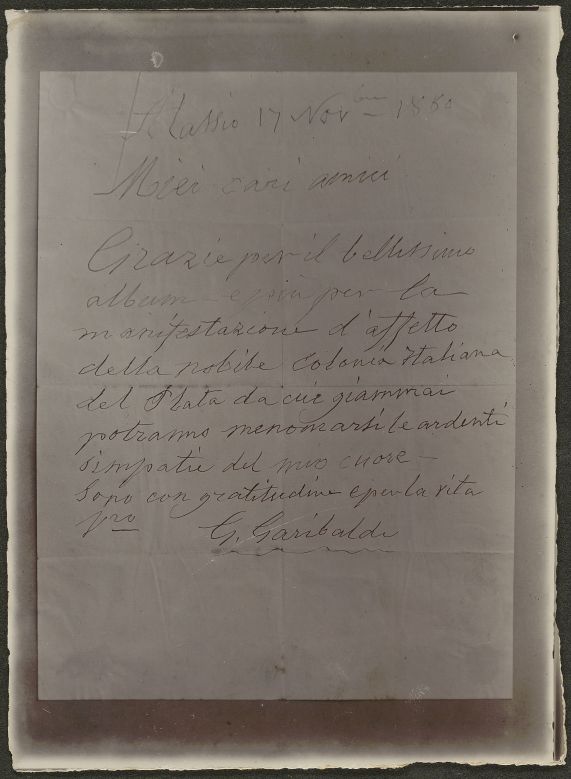 Alassio 17 Novbre – 1880
Miei cari amici
Grazie per il bellissimo
album – e più per la
manifestazione d'affetto
della nobile colonia Italiana
del Plata da cui giammai
potranno menomarsi le ardenti
simpatie del mio cuore –
Sono con gratitudine e per la vita
Vro
G. Garibaldi